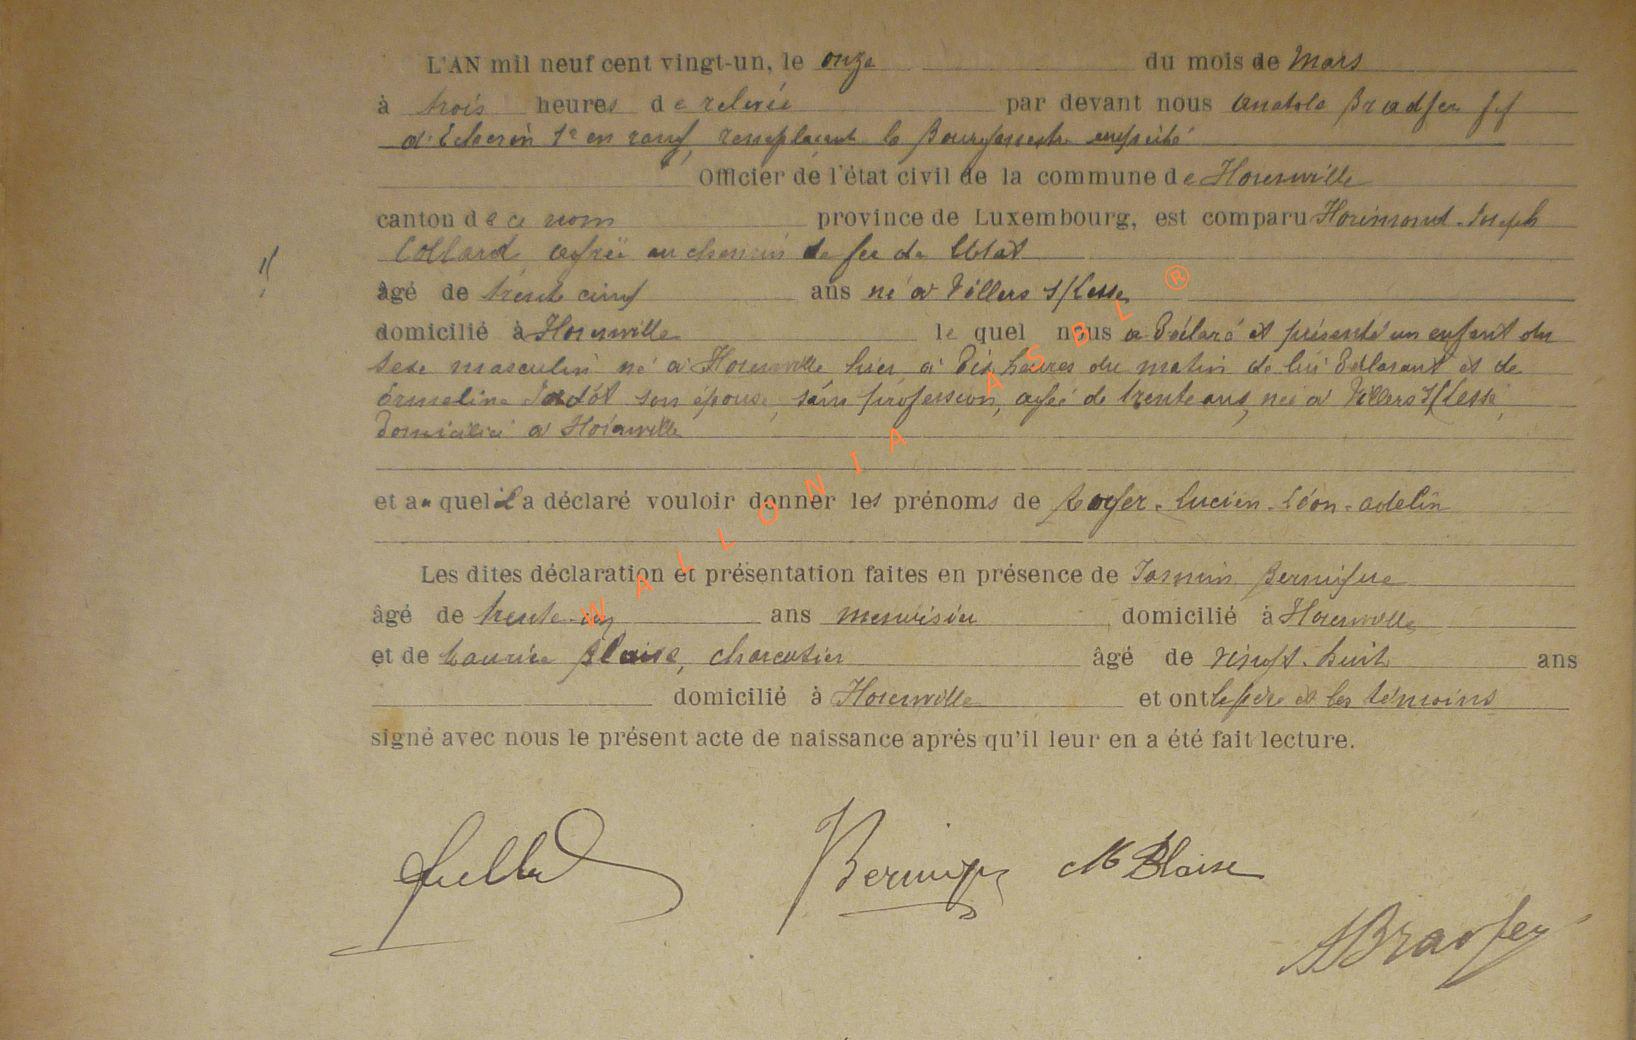 L'AN mil neuf cent vingt-un, le onze du mois de Mars
à trois heures de relevée par devant nous Anatole Bradfer ff
d'Echevin 1er en rang, remplaçant le Bourgmestre empêché
Officier de l'état civil de la commune de Hotenville
canton de ce nom province de Luxembourg, est comparu Joseph
Collard, agréé au chemin de fer de l'Etat
âgé de trente cinq ans né à Villers s/Lesse
domicilié à le quel nous a déclaré et présenté un enfant du
sexe masculin né à hier à dix heures du matin de lui déclarant et de
Ermeline Jadot son épouse, sans profession, agée de trente ans, née à Villers s/Lesse,
domiciliée à
et auquel il a déclaré vouloir donner les prénoms de Roger-Lucien-Léon-Adelin
Les dites déclaration et présentation faites en présence de Bernique
âgé de trente ans menuisier domicilié à
et de Maurice Blaise, charcutier âgé de vingt-huit ans
domicilié à et ont le père et les témoins
signé avec nous le présent acte de naissance après qu'il leur en a été fait lecture.
M Blaise
ABradfer
WALLONIA ASBL ®